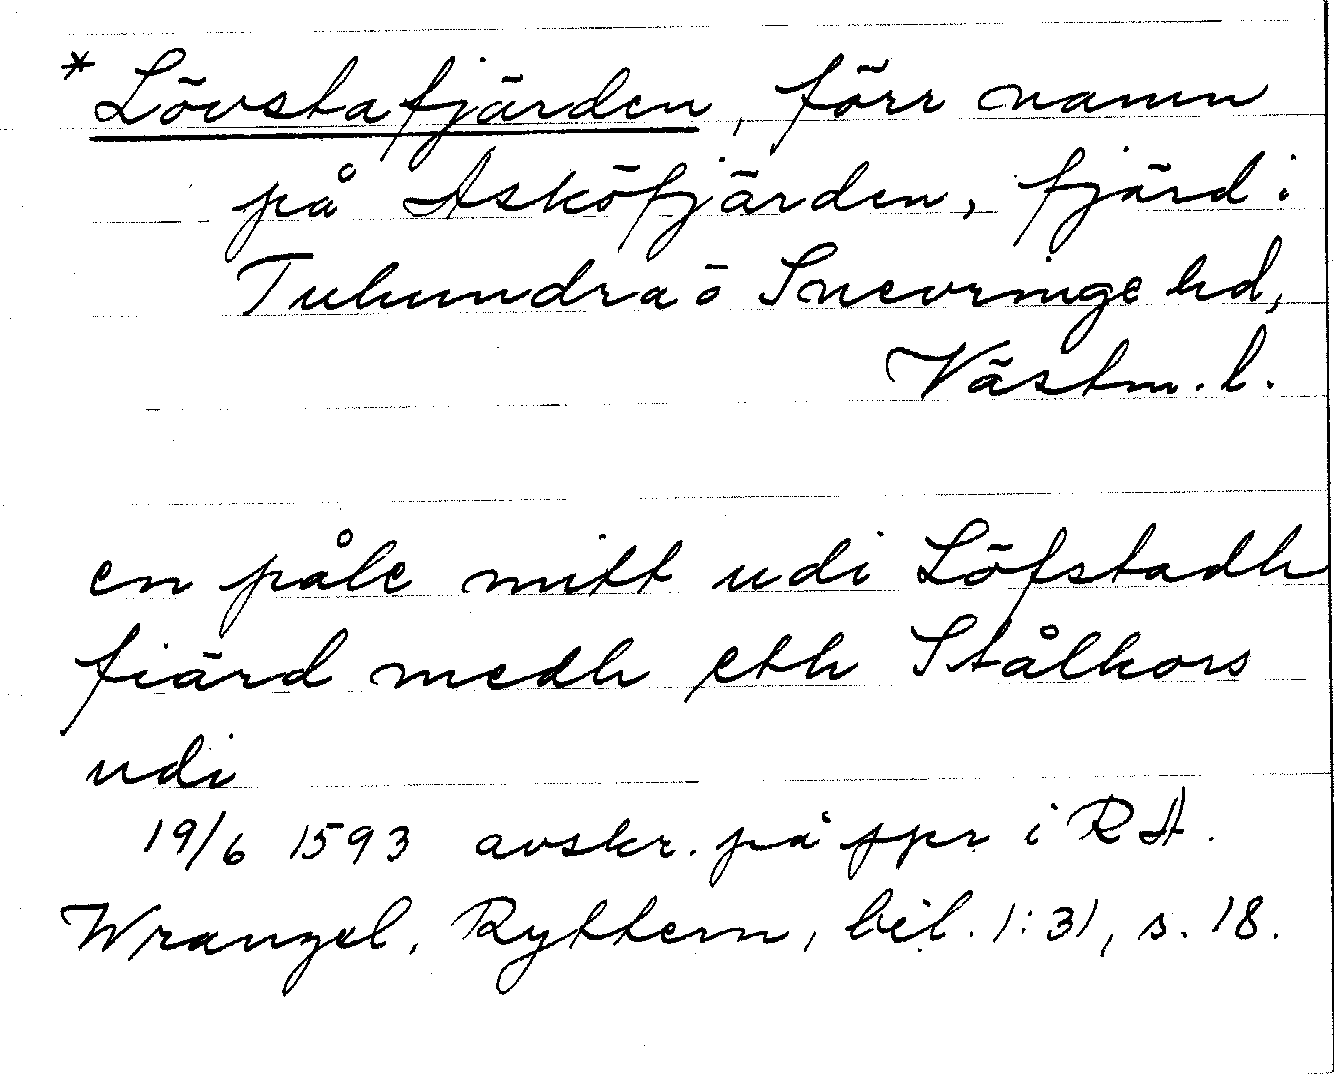 *Lövstafjärden, förr namn
på Asköfjärden, fjärd i
Tuhundra o Snevringe hd,
Västm. l.
en påle mitt udi Löfstadh
fiärd medh eth Stålkors
udi
19/6 1593 avskr. på ppr i RA.
Wrangel, Ryttern, bil. 1:31, s. 18.